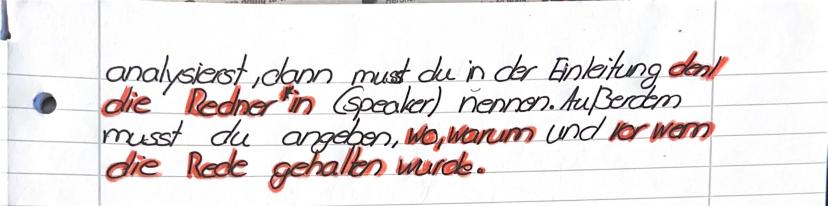 analysierst, dann musst du in der Einleitung den/
die Redner*in (speaker) nennen. Außerdem
musst du angeben, wo, warum und vor wem
die Rede gehalten wurde.